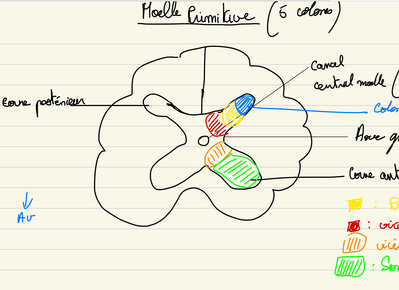 Moelle Primitive (5 colones)
canal
central moelle (
corne postérieure
Colon
Axe g
Corne ant
Av
: S
: visc
viscé
: Som